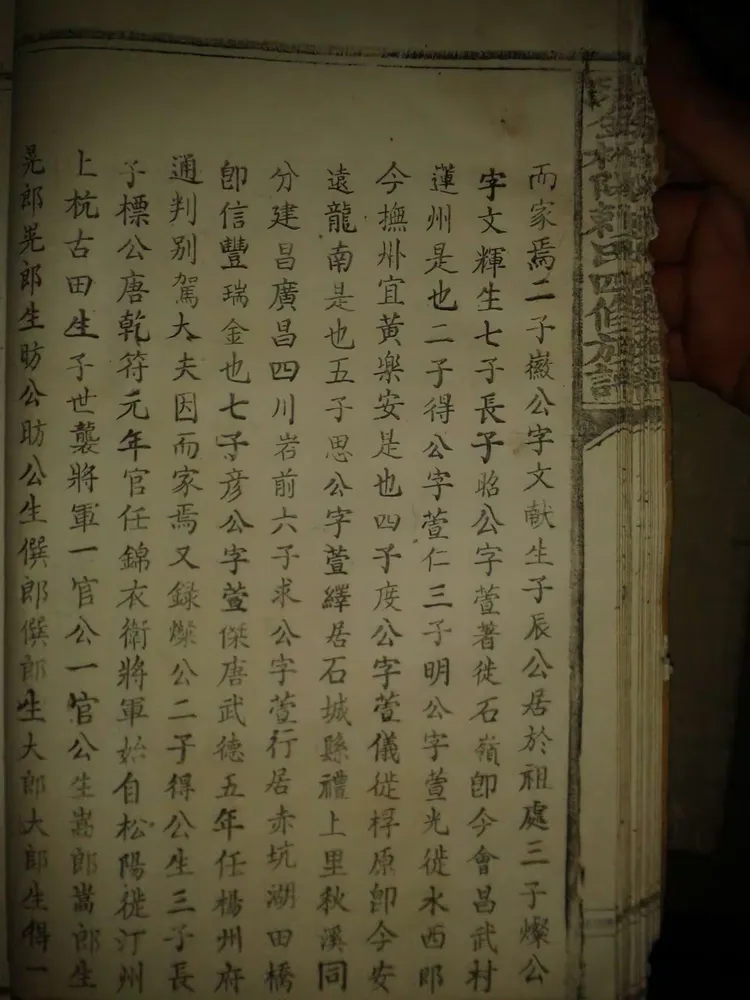 松陽賴田四修族譜
而家焉二子徽公字文献生子辰公居於祖處三子燦公
字文輝生七子長子昭公字萱著徙石嶺卽今會昌武村
蓮州是也二子得公字萱仁三子明公字萱光徙水西郎
今撫州宜黃樂安是也四子度公字萱儀徙桴原卽今安
遠龍南是也五子思公字萱繹居石城縣禮上里秋溪同
分建昌廣昌四川岩前六子求公字萱行居赤坑湖田橋
卽信豐瑞金也七子彦公字萱傑唐武德五年任楊州府
通判別駕大夫因而家焉又録燦公二子得公生三子長
子標公唐乾符元年官任錦衣衛將軍始自松陽徙汀州
上杭古田生子世襲將軍一官公一官公生嵩郎嵩郎生
晃郎晃郎生昉公昉公生僎郎僎郎生大郎大郎生得一